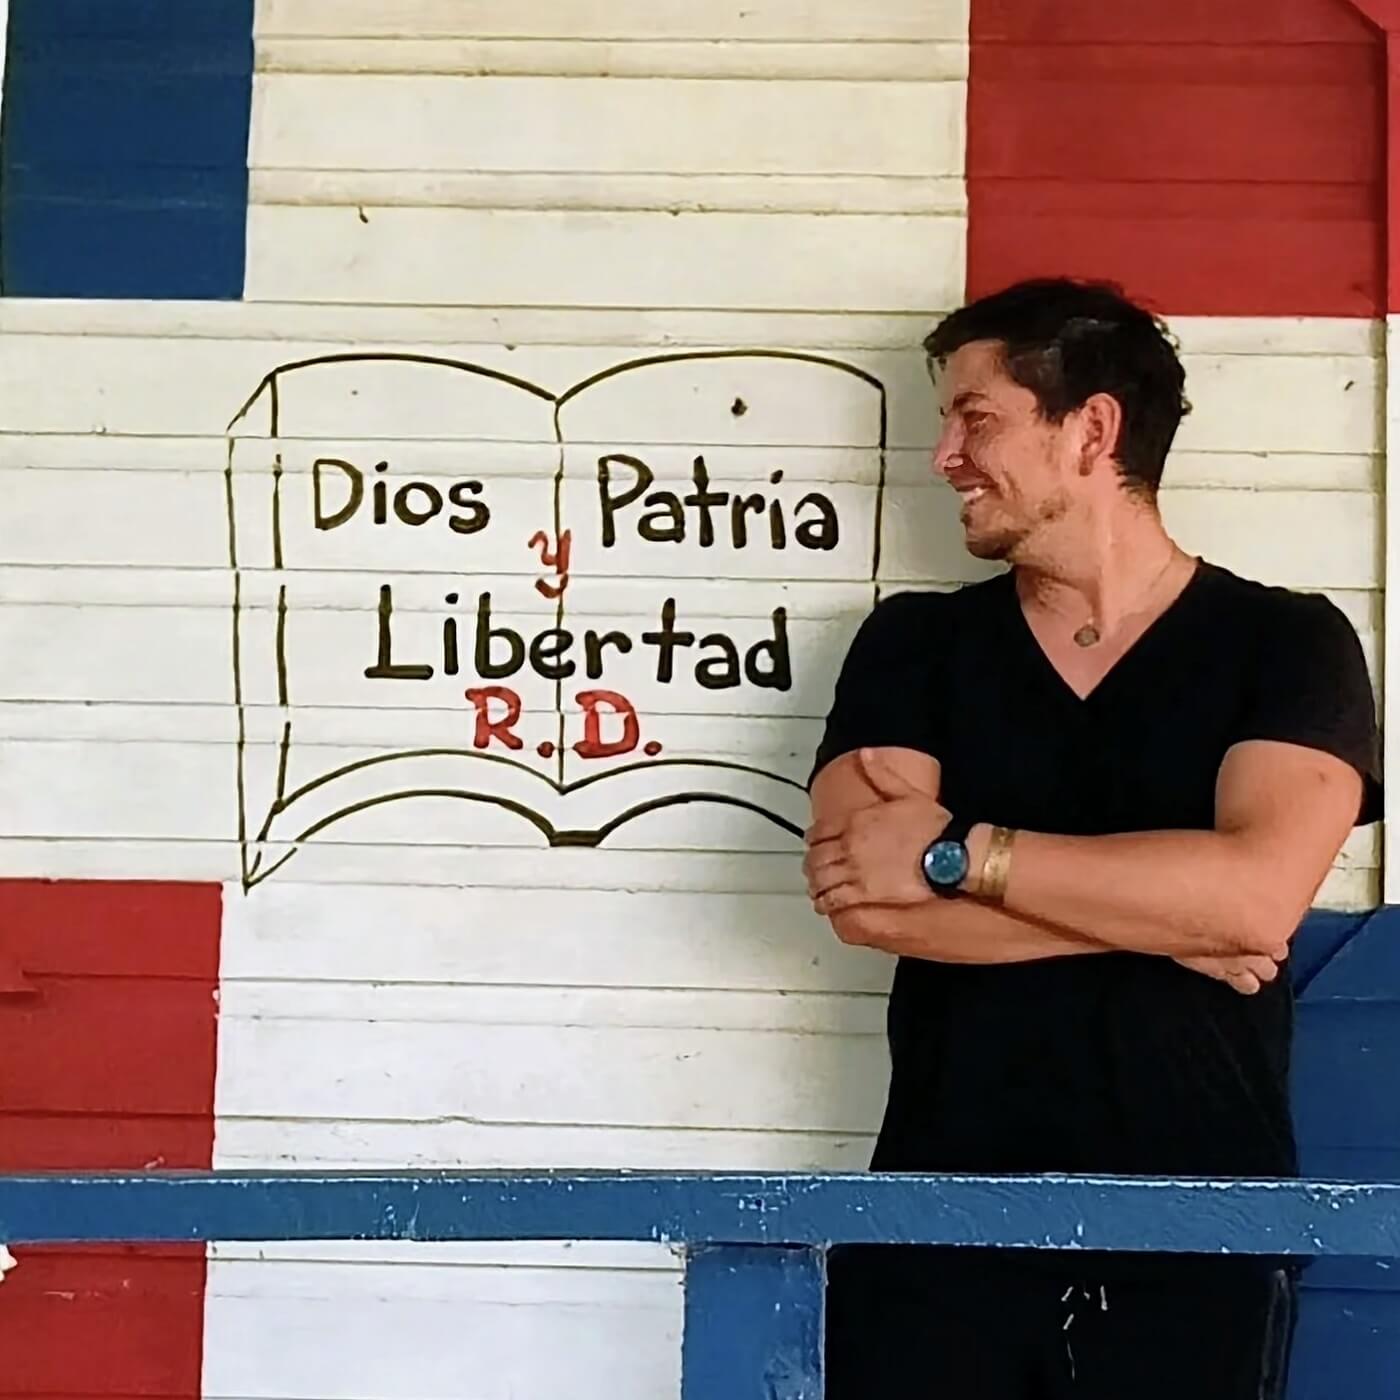 Dios Patria
y
Libertad
R.D.